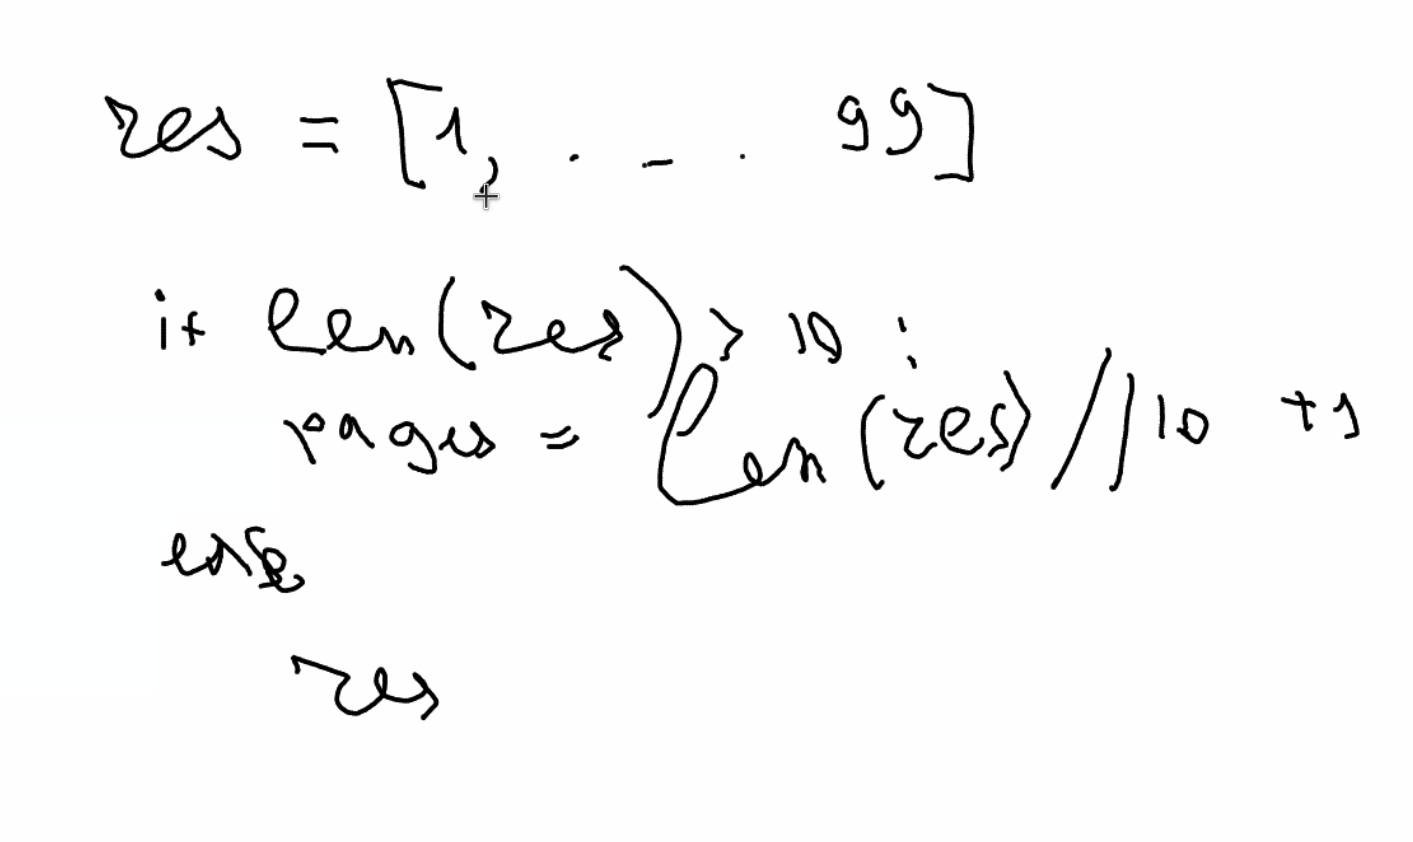 res = [1, . _ . 99]
if len(res) > 10 :
pages = len(res) // 10 +1
else
res